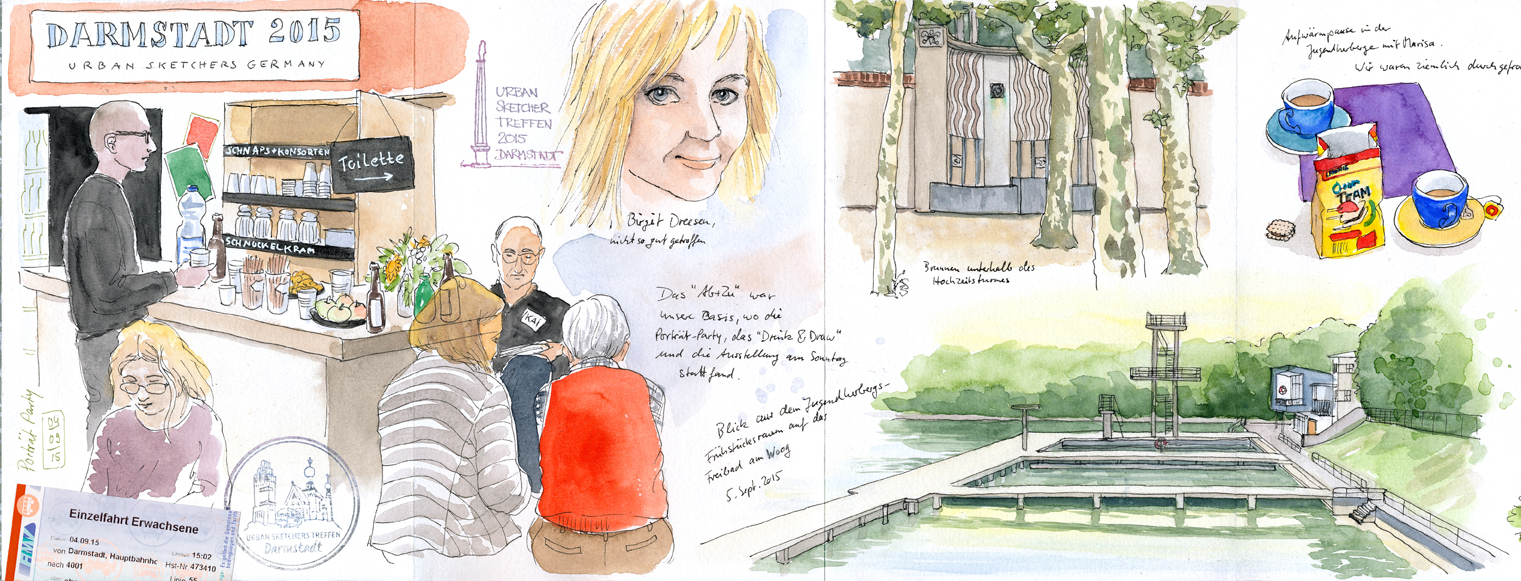 DARMSTADT 2015
URBAN SKETCHERS GERMANY
SCHNAPS+KONSORTEN
Toilette
SCHNÖCKELKRAM
KAI
URBAN
SKETCHER
TREFFEN
2015
DARMSTADT
Birgit Dreesen,
nicht so gut getroffen
Das "Ab+Zu" war
unsere Basis, wo die
Porträt-Party, das "Drink & Draw"
und die Ausstellung am Sonntag
stattfand.
Blick aus dem Jugendherbergs-
Frühstücksraum auf das
Freibad am Woog
5. Sept. 2015
Brunnen unterhalb des
Hochzeitsturmes
Aufwärmpause in der
Jugendherberge mit Marisa.
Wir waren ziemlich durchgefro
TEAM
Porträt Party
URBAN SKETCHERS TREFFEN
Darmstadt
Einzelfahrt Erwachsene
04.09.15
15:02
von Darmstadt, Hauptbahnho
Hst-Nr. 473410
nach 4001
Linie 55